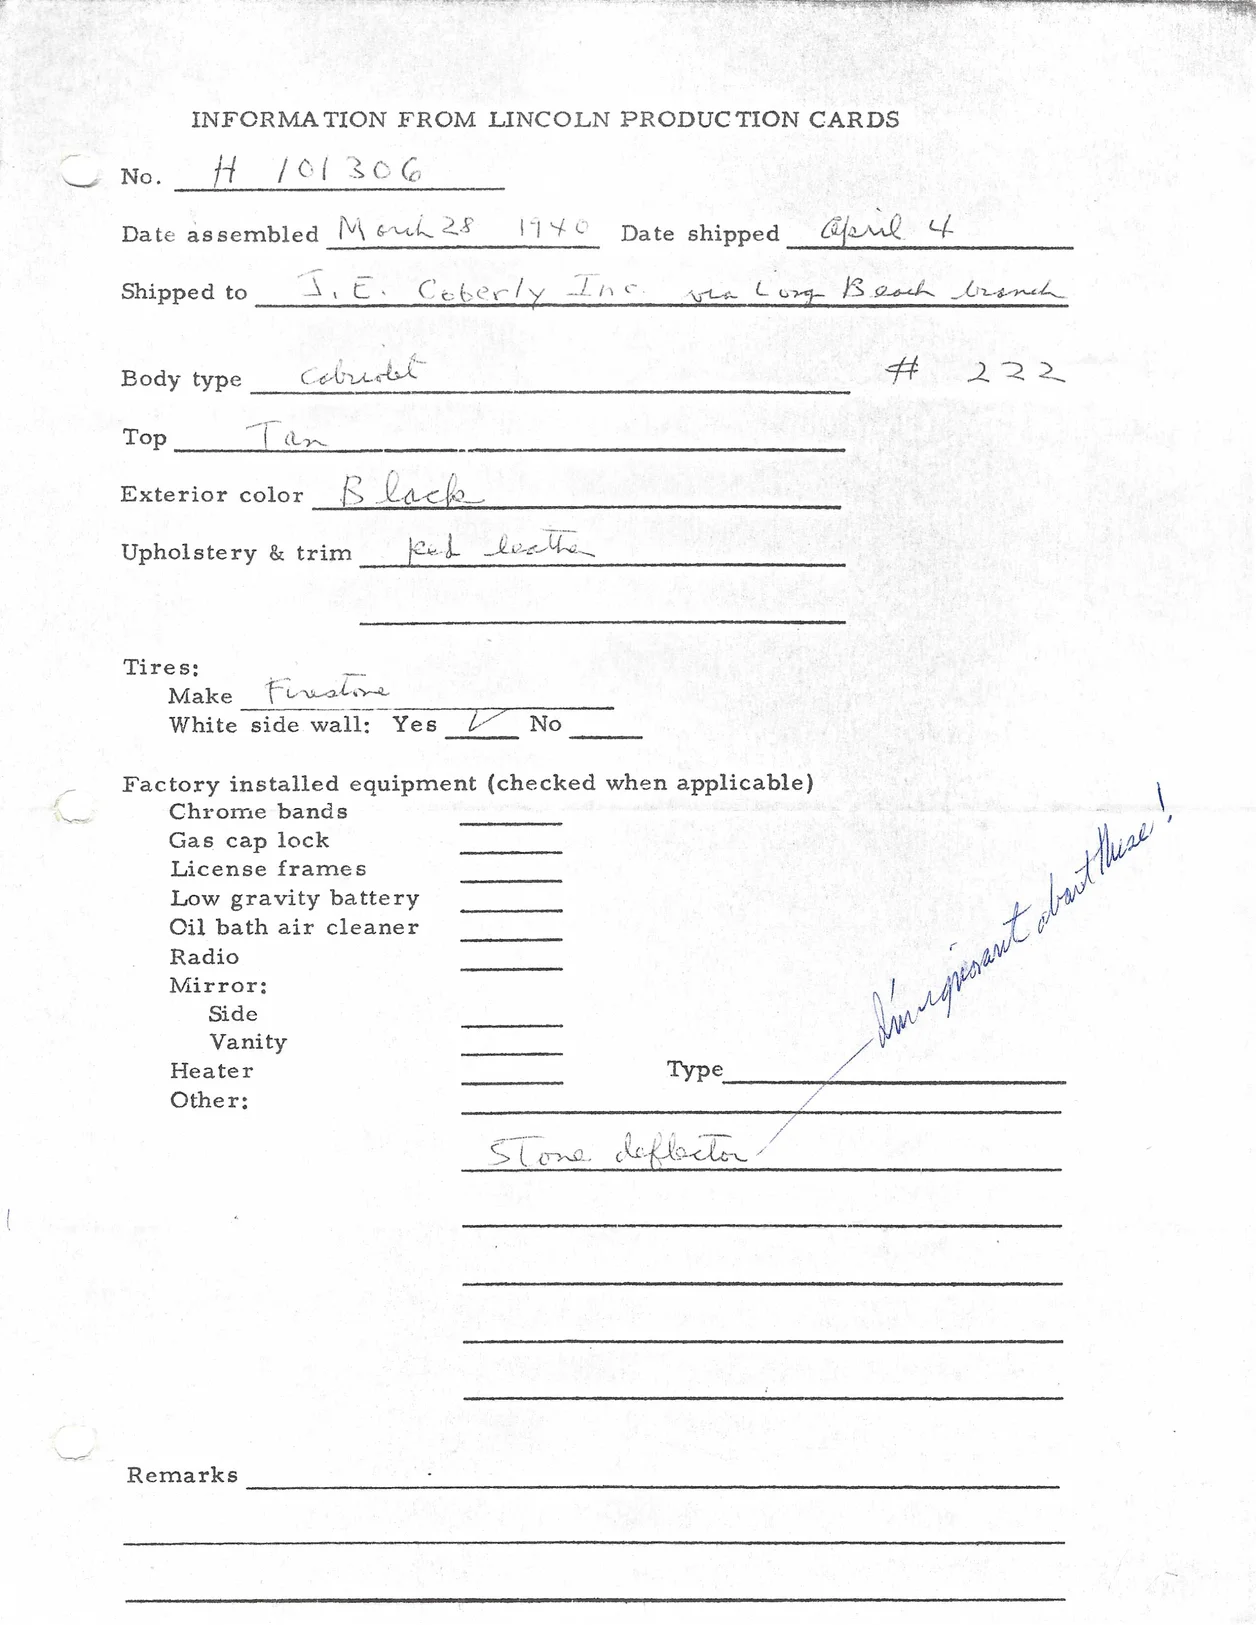 INFORMATION FROM LINCOLN PRODUCTION CARDS
No. H 101306
Date assembled March 28 1940 Date shipped April 4
Shipped to J. E. Coberly Inc. via Long Beach branch
Body type Cabriolet # 222
Top Tan
Exterior color Black
Upholstery & trim Red leather
Tires:
Make Firestone
White side wall: Yes ✓ No
Factory installed equipment (checked when applicable)
Chrome bands
Gas cap lock
License frames
Low gravity battery
Oil bath air cleaner
Radio
Mirror:
Side
Vanity
Heater Type
Other:
Stone deflector
I'm ignorant about these!
Remarks